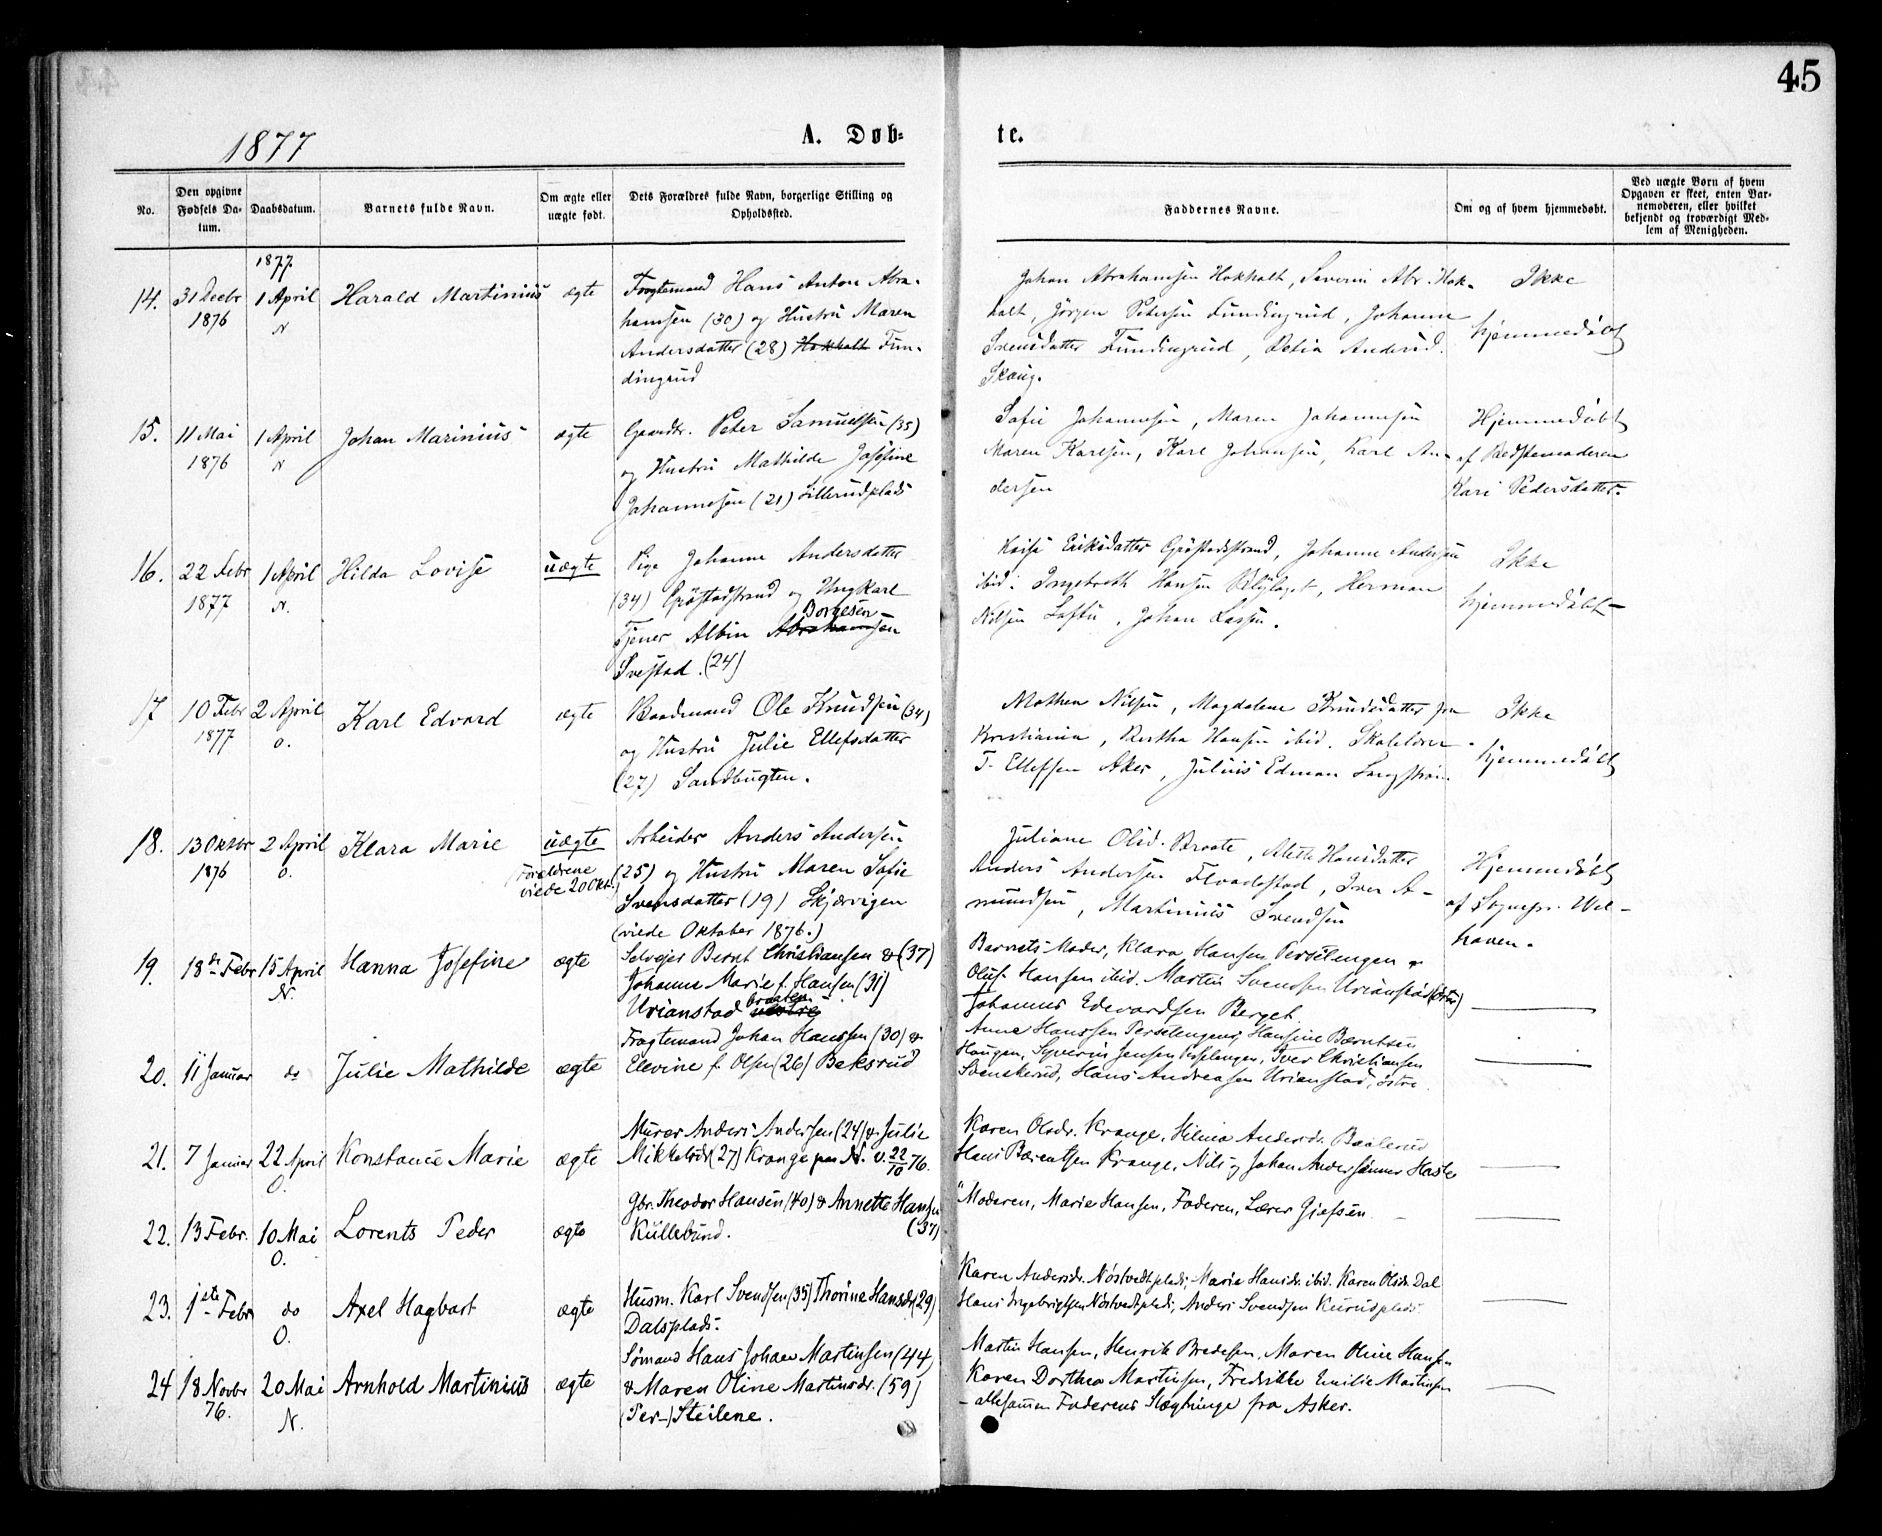 45
1877
A. Døb-
te.
No.
Den opgivne
Fødsels Da-
tum.
Daabsdatum.
Barnets fulde Navn.
Om ægte eller
uægte født.
Dets Forældres fulde Navn, borgerlige Stilling og
Opholdssted.
Faddernes Navne.
Om og af hvem hjemmedøbt.
Ved uægte Børn af hvem
Opgaven er skeet, enten Bar-
nemoderen, eller hvilket
bekjendt og troværdigt Med-
lem af Menigheden.
1877
14.
31 Decbr
1876
1 April
N
Harald Martinius
ægte
Fragtemand Hans Anton Abra-
hamsen (30) og Hustru Maren
Andersdatter (28) Hakholt Fun-
dingrud
Johan Abrahamsen Hakholt, Severin Abr. Hak-
holt, Jörgen Petersen Fundingrud, Johanne
Svensdatter Fundingrud, Petia Andersd.
Skaug.
Ikke
hjemmedøbt
15.
11 Mai
1876
1 April
N
Johan Marinius
ægte
Gaardbr. Peter Samuelsen (35)
og Hustru Mathilde Josefine
Johannesen (21) Lillerudplads
Sofie Johannesen, Maren Johannesen
Maren Karlsen, Karl Johansen, Karl An-
dersen
Hjemmedøbt
af Bedstemoderen
Kari Pedersdatter.
16.
22 Febr
1877
1 April
N.
Hilda Lovise
uægte
Pige Johanne Andersdatter
(34) Gröstadstrand og Ungkarl
Borgesen
Tjener Albin Abrahamsen
Svestad. (24)
Kaisa Eriksdatter Gröstadstrand, Johanne Andersen
ibid. Ingebreth Hansen, Herman
Nilsen Loftu, Johan Lassen.
Ikke
hjemmedøbt-
17
10 Febr
1877
2 April
O.
Karl Edvard
ægte
Baadmand Ole Knudsen (34)
og Hustru Julie Ellefsdatter
(27) Sandbugten.
Mathea Nilsen, Magdalene Knudsdatter fra
Kristiania, Bertha Hansen ibid. Skolelærer
T. Ellefsen Aker, Julius Edman Langström
Ikke
hjemmedøbt
18.
13 Oktbr
1876
2 April
O.
Klara Marie
uægte
(Forældrene
viede 20 Okt.)
Arbeider Anders Andersen
(25) og Hustru Maren Sofie
Svensdatter (19) Skjærvigen
(viede Oktober 1876.)
Juliane Olsd. Braate, Alette Hansdatter
Anders Andersen Flaadestad, Iver A-
mundsen, Martinius Svendsen
Hjemmedøbt
af Sognepr. Wel-
haven.
19.
18de Febr
15 April
N.
Hanna Josefine
ægte
Selvejer Bernt Christiansen & (37)
Johanne Marie f. Hansen (31)
braaten
Urianstad vestre
Barnets Moder, Klara Hansen Persetengen &
Oluf Hansen ibid. Martin Svendsen Urianstad (østre)
Johannes Edevardsen Berget.
20.
11 Januar
do
Julie Mathilde
ægte
Fragtemand Johan Hanssen (30) &
Elevine f. Olsen (26) Beksrud
Anne Hanssen Persetengen, Hansine Berntsen
Haugen, Syverin Jensen Persetengen, Iver Christiansen
Svenskerud, Hans Andreasen Urianstad, østre.
21.
7 Januar
22 April
O.
Konstance Marie
ægte
Murer Anders Andersen (24) & Julie
Mikkelsdr (27) Krange paa N. v. 22/10 76.
Karen Olsdr. Krange, Hilma Andersdr. Baalerud
Hans Bærentsen Krange, Nils og Johan Anderssønner Hasle
22.
13 Febr.
10 Mai
O.
Lorents Peder
ægte
Gbr. Theodor Hansen (40) & Annette Hansen
Küllebund. (37)
Moderen, Marie Hansen, Faderen, Lærer Giefsen
23.
1ste Febr
do
O.
Axel Hagbart
ægte
Husm. Karl Svendsen (35) Thorine Hansdr (29)
Dalsplads.
Karen Andersdr. Nöstvedtplads, Marie Hansdr. ibid. Karen Olsdr Dal
Hans Ingebrigtsen Nöstvedtplads, Anders Svendsen Kurudplads.
24
18 Novbr
76.
20 Mai
N.
Arnhold Martinius
ægte
Sømand Hans Johan Martinsen (44
& Maren Oline Martinsdr. (59)
(Per-) Steilene.
Martin Hansen, Henrik Bredesen, Maren Oline Hansen
Karen Dorthea Martinsen, Fredrikke Emilie Martinsen
- allesammen Faderens Slægtninge fra Asker.